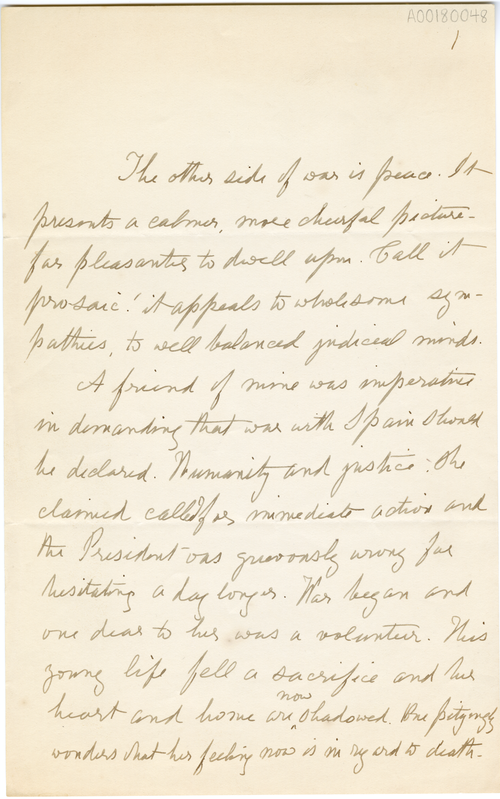 A00180048
1
The other side of war is peace. It
presents a calmer, more cheerful picture-
far pleasanter to dwell upon. Call it
prosaic! it appeals to wholesome sym-
pathies, to well balanced judicial minds.
A friend of mine was imperative
in demanding that war with Spain should
be declared. Humanity and justice; she
claimed called for immediate action and
the President was grievously wrong for
hesitating a day longer. War began and
one dear to her was a volunteer. His
young life fell a sacrifice and her
now
heart and home are shadowed. One pityingly
wonders what her feeling now is in regard to death-